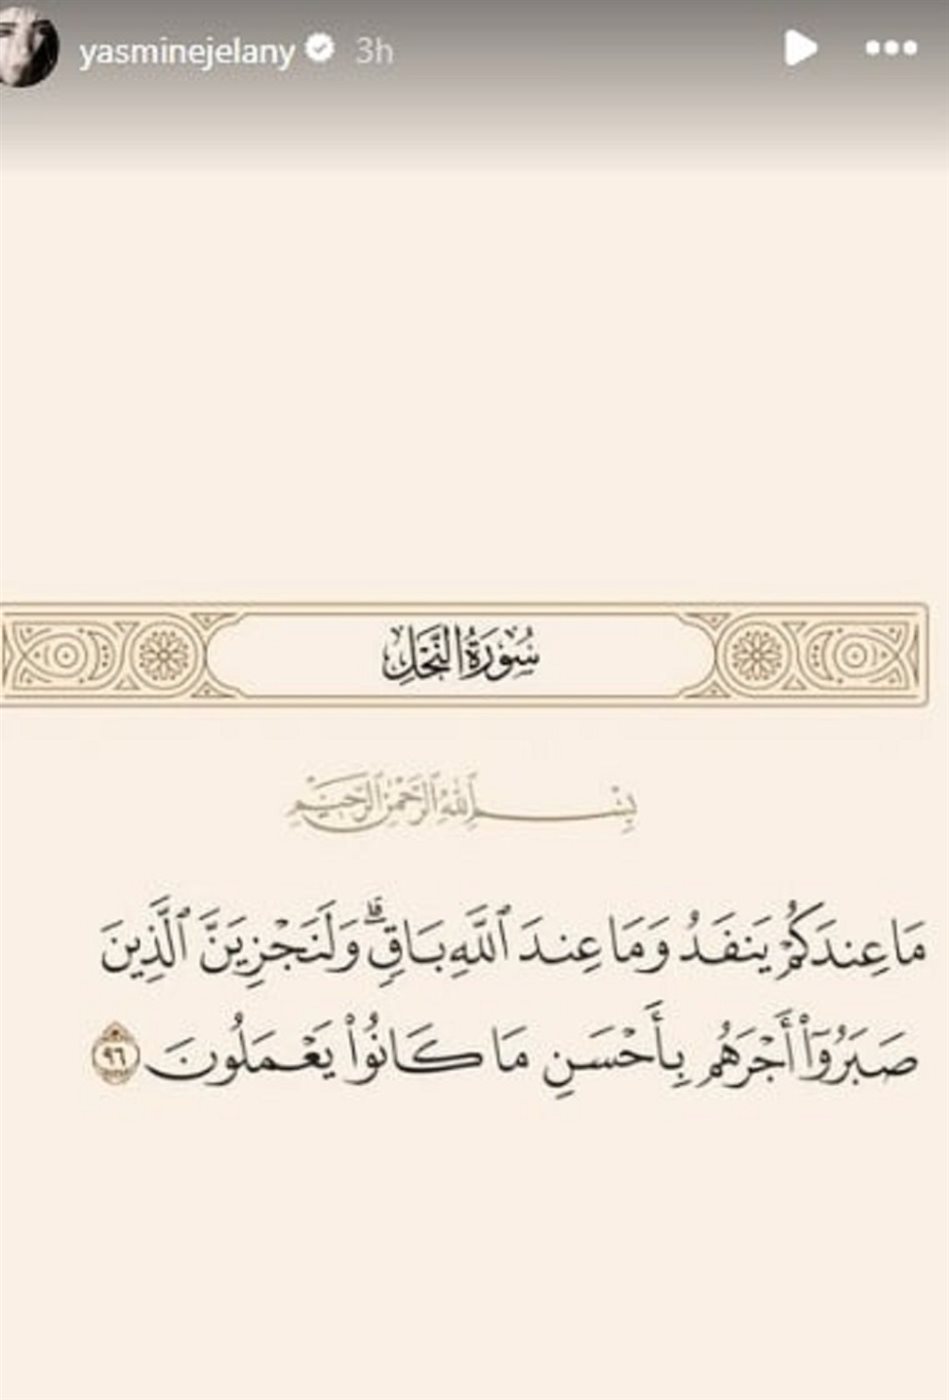 yasminejelany 3h
سُورَةُ النَّحْلِ
بِسْمِ ٱللَّهِ ٱلرَّحْمَٰنِ ٱلرَّحِيمِ
مَا عِندَكُمْ يَنفَدُ وَمَا عِندَ ٱللَّهِ بَاقٍۗ وَلَنَجْزِيَنَّ ٱلَّذِينَ
صَبَرُوٓا۟ أَجْرَهُم بِأَحْسَنِ مَا كَانُوا۟ يَعْمَلُونَ ٩٦